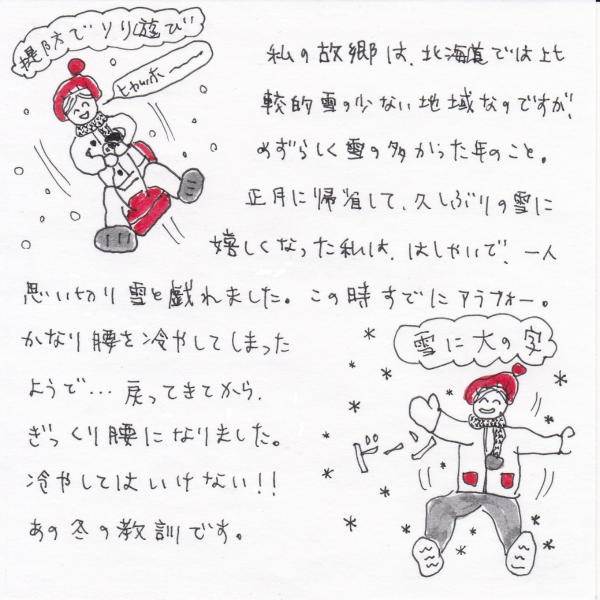 堤防でソリ遊び
ヒャッホー〜〜
私の故郷は、北海道では比
較的雪の少ない地域なのですが、
めずらしく雪の多かった年のこと。
正月に帰省して、久しぶりの雪に
嬉しくなった私は、はしゃいで、一人
思い切り雪と戯れました。この時すでにアラフォー。
かなり腰を冷やしてしまった
ようで…戻ってきてから、
ぎっくり腰になりました。
冷やしてはいけない!!
あの冬の教訓です。
雪に大の字
ドーン